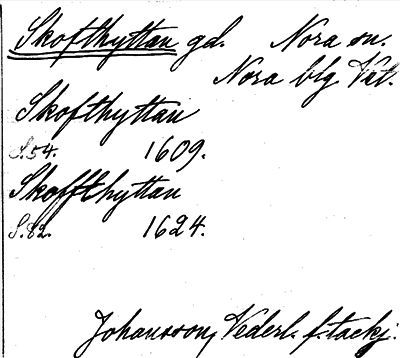 Skofthyttan gd. Nora sn.
Nora blg Vstm.
Skofthyttan
S.54. 1609.
Skoffthyttan
S.82. 1624.
Johansson, Vederl. f. tackj.